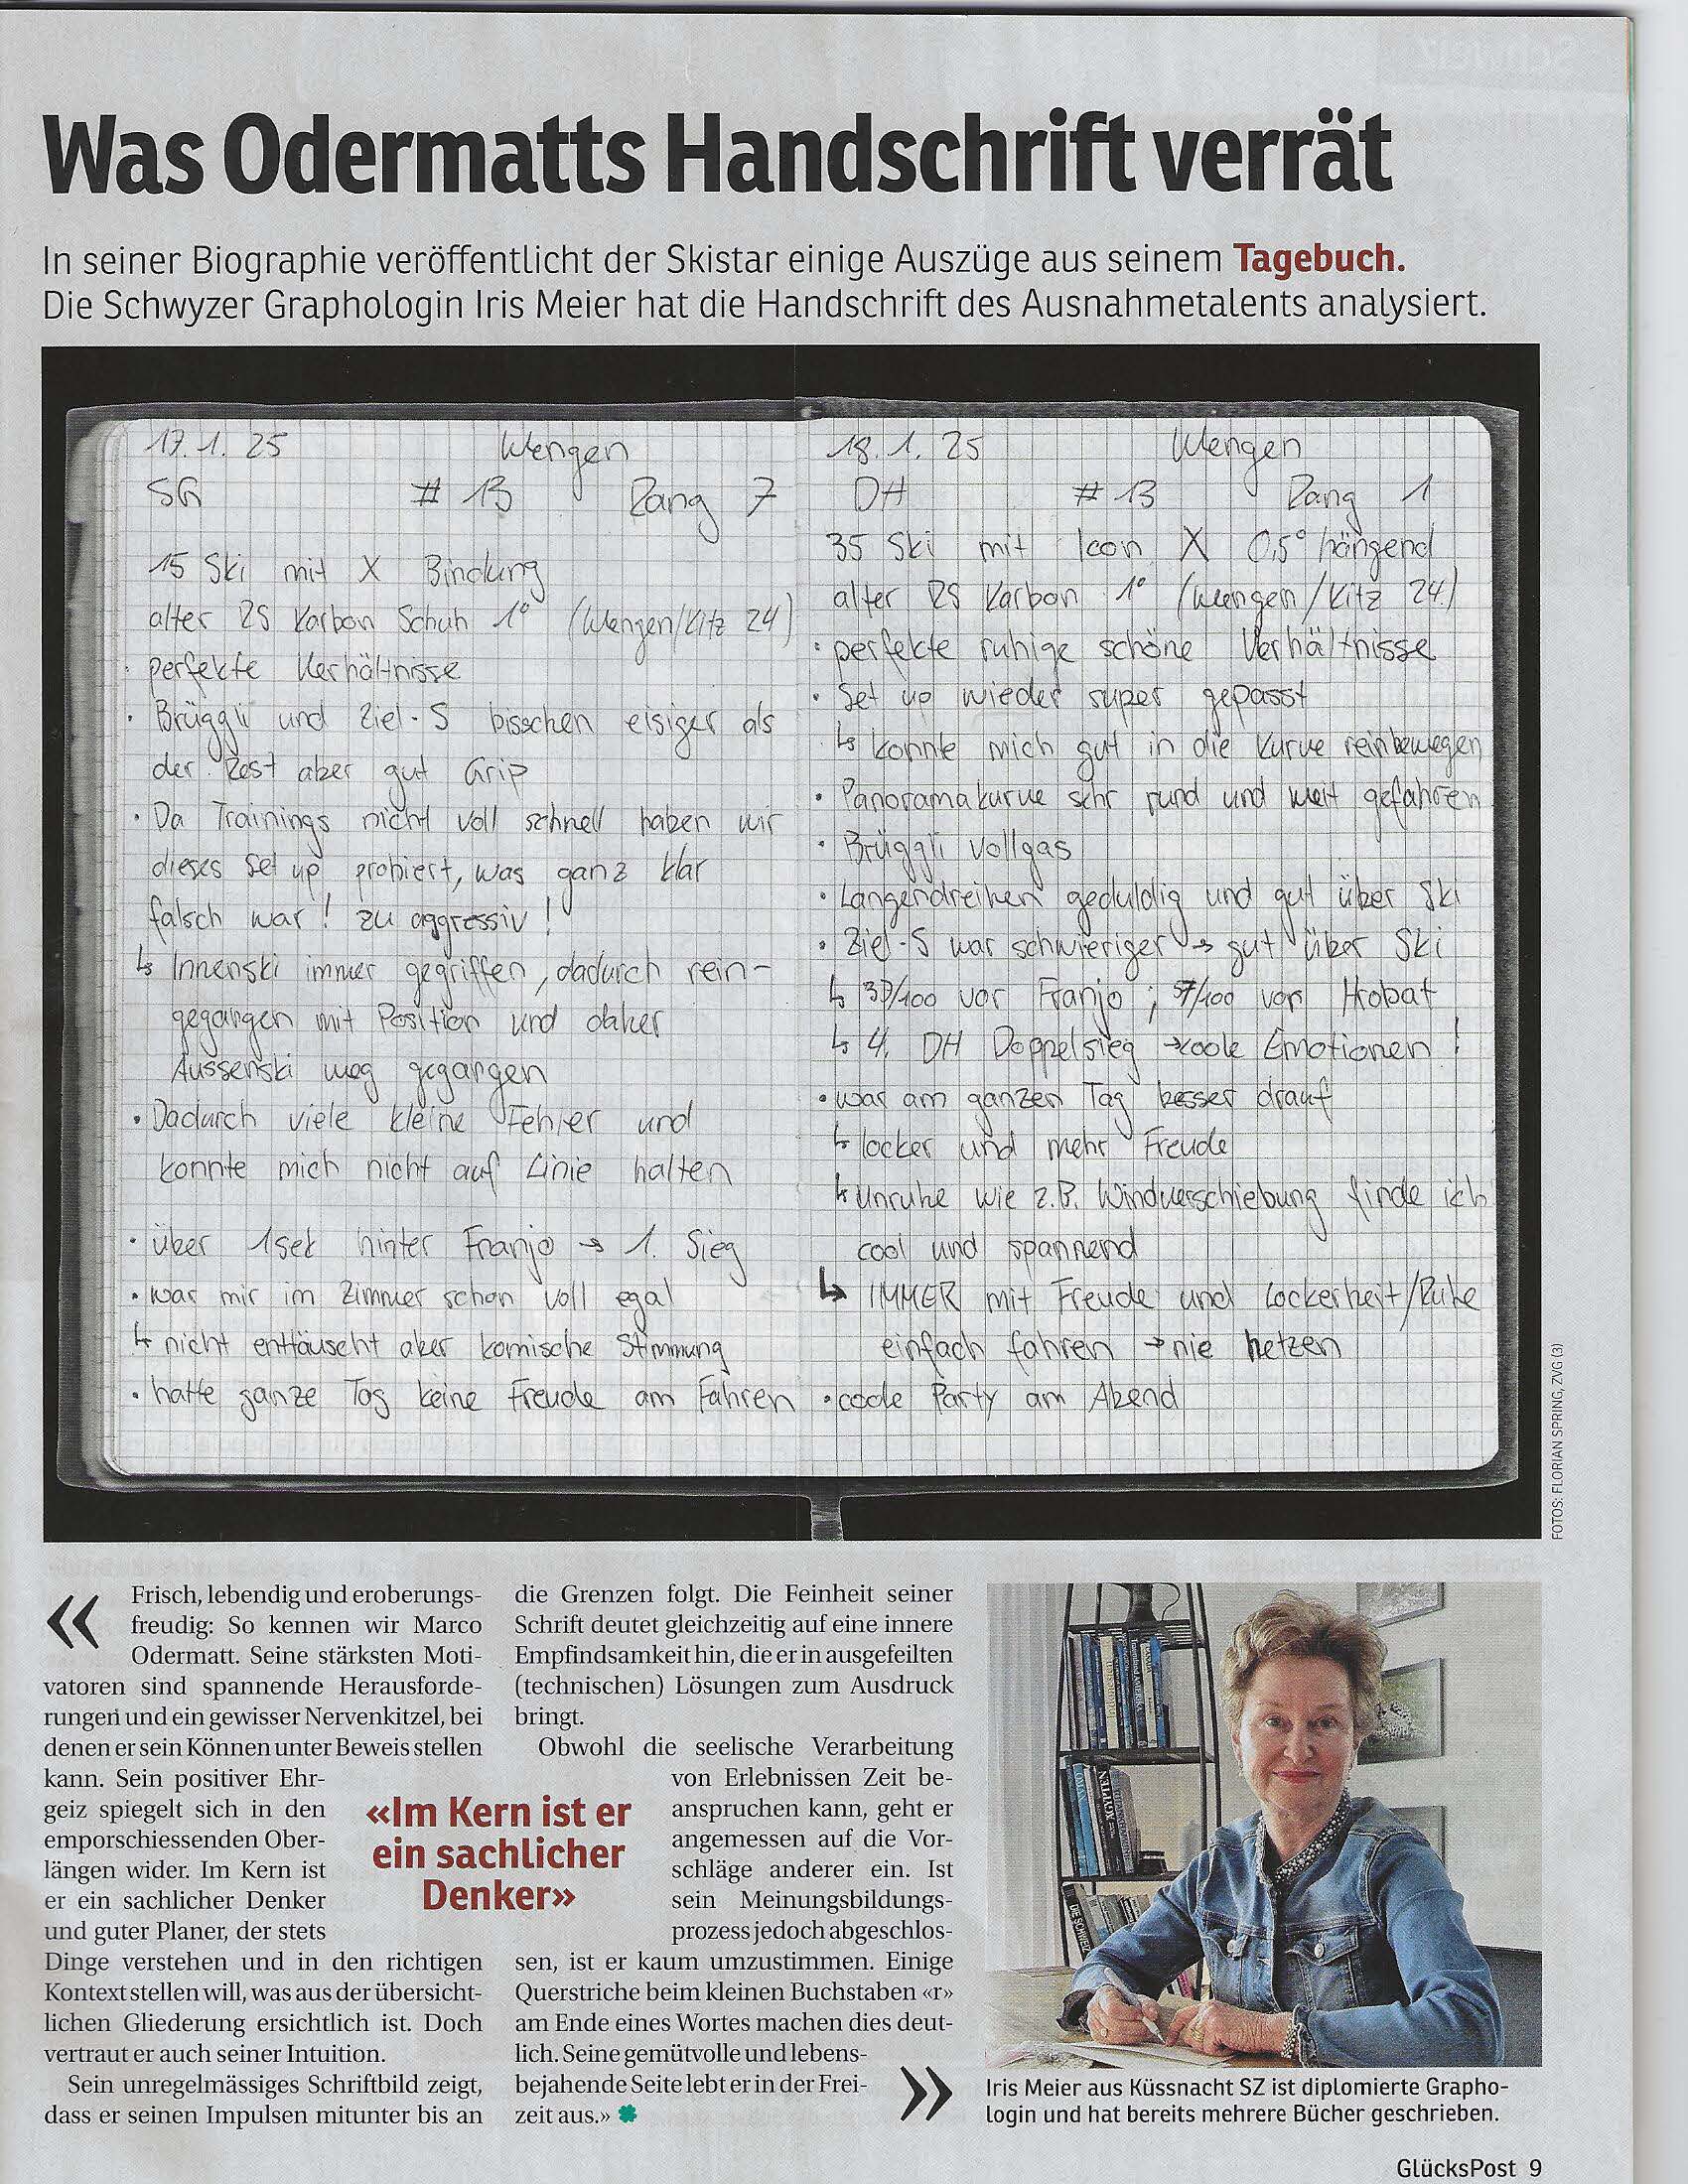 Was Odermatts Handschrift verrät
In seiner Biographie veröffentlicht der Skistar einige Auszüge aus seinem Tagebuch.
Die Schwyzer Graphologin Iris Meier hat die Handschrift des Ausnahmetalents analysiert.
17.1.25 Wengen
SG # 13 Rang 7
15 Ski mit X Bindung
alter RS Karbon Schuh 1° (Wengen/Kitz 24)
· perfekte Verhältnisse
· Brüggli und Ziel-S bisschen eisiger als
der Rest aber gut Grip
· Da Trainings nicht voll schnell haben wir
dieses Set up probiert, was ganz klar
falsch war! zu aggressiv!
↳ Innenski immer gegriffen, dadurch rein-
gegangen mit Position und daher
Aussenski weg gegangen
· Dadurch viele kleine Fehler und
konnte mich nicht auf Linie halten
· über 1sek hinter Franjo → 1. Sieg
· war mir im Zimmer schon voll egal
↳ nicht enttäuscht aber komische Stimmung
· hatte ganze Tag keine Freude am Fahren
18.1.25 Wengen
DH # 13 Rang 1
35 Ski mit Icon X 0,5° hängend
alter RS Karbon 1° (Wengen/Kitz 24)
· perfekte ruhige schöne Verhältnisse
· Set up wieder super gepasst
↳ konnte mich gut in die Kurve reinbewegen
· Panoramakurve sehr rund und weit gefahren
· Brüggli vollgas
· Langendreihen geduldig und gut über Ski
· Ziel-S war schwieriger → gut über Ski
↳ 37/100 vor Franjo ; 57/100 vor Hrobat
↳ 4. DH Doppelsieg → coole Emotionen!
· war am ganzen Tag besser drauf
↳ locker und mehr Freude
↳ Unruhe wie z.B. Windverschiebung finde ich
cool und spannend
↳ IMMER mit Freude und Lockerheit/Ruhe
einfach fahren → nie hetzen
· coole Party am Abend
FOTOS: FLORIAN SPRING, ZVG (3)
« Frisch, lebendig und eroberungs-
freudig: So kennen wir Marco
Odermatt. Seine stärksten Moti-
vatoren sind spannende Herausforde-
rungen und ein gewisser Nervenkitzel, bei
denen er sein Können unter Beweis stellen
kann. Sein positiver Ehr-
geiz spiegelt sich in den
emporschiessenden Ober-
längen wider. Im Kern ist
er ein sachlicher Denker
und guter Planer, der stets
Dinge verstehen und in den richtigen
Kontext stellen will, was aus der übersicht-
lichen Gliederung ersichtlich ist. Doch
vertraut er auch seiner Intuition.
Sein unregelmässiges Schriftbild zeigt,
dass er seinen Impulsen mitunter bis an
«Im Kern ist er
ein sachlicher
Denker»
die Grenzen folgt. Die Feinheit seiner
Schrift deutet gleichzeitig auf eine innere
Empfindsamkeit hin, die er in ausgefeilten
(technischen) Lösungen zum Ausdruck
bringt.
Obwohl die seelische Verarbeitung
von Erlebnissen Zeit be-
anspruchen kann, geht er
angemessen auf die Vor-
schläge anderer ein. Ist
sein Meinungsbildungs-
prozess jedoch abgeschlos-
sen, ist er kaum umzustimmen. Einige
Querstriche beim kleinen Buchstaben «r»
am Ende eines Wortes machen dies deut-
lich. Seine gemütvolle und lebens-
bejahende Seite lebt er in der Frei-
zeit aus.» »
Iris Meier aus Küssnacht SZ ist diplomierte Grapho-
login und hat bereits mehrere Bücher geschrieben.
GlücksPost 9